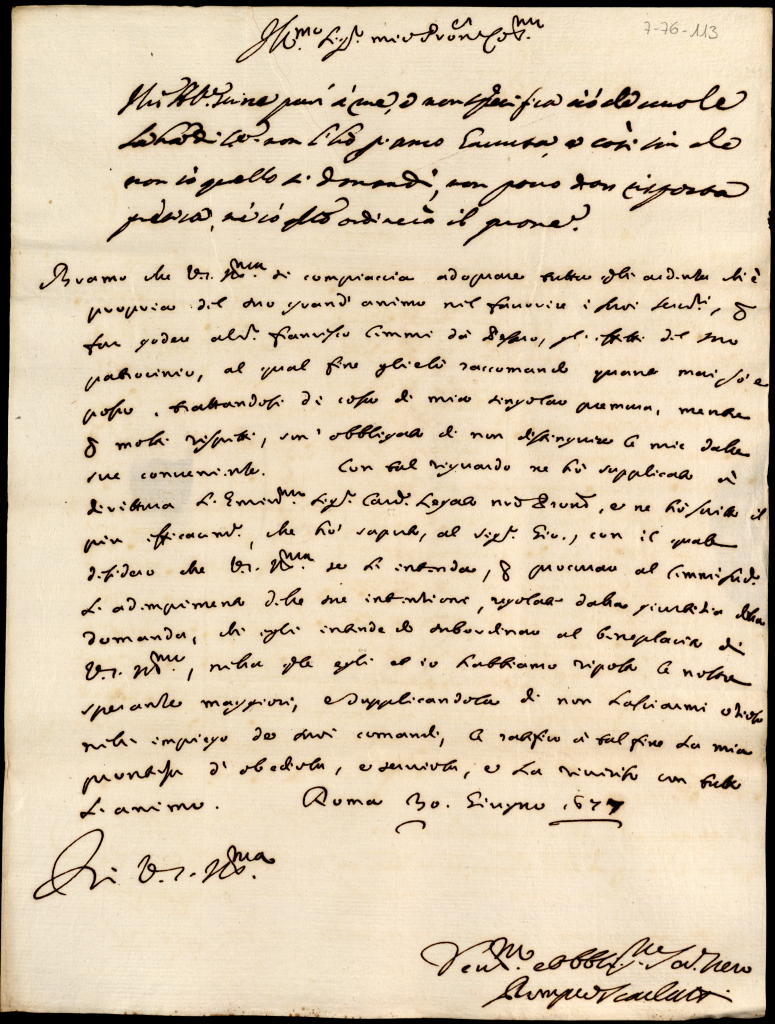 7-76-113
Ill.mo Sig.r mio P.ron Col.mo
scrive però à me, e non specifica ciò che vuole
non l'hò per anco
non sò quello si domandi, non posso dar risposta
precisa,
Bramo che V.S. Ill.ma si compiaccia adoprare tutto quell'ardente ch'è
proprio del suo grand'animo nel favorire i suoi ser.ri, p
far godere al S.r Francesco Cimmi da Pesaro, gl'effetti del suo
patrocinio, al qual fine glielo raccomando quanto mai sò e
posso, trattandosi di cosa di mia singolar premura, mentre
p molti rispetti, son' obbligato di non distinguere le mie dalle
sue convenienze. Con tal riguardo ne hò supplicato à
dirittura L'Emin.mo Sig.r Card. Legato n.ro P.rone, e ne hò scritto il
più efficacem.te, che hò saputo, al Sig.r Gio., con il quale
desidero che V.S. Ill.ma se l'intenda, p procurar al Cimmi sud.o
L'adempimento delle sue intentioni, regolate dalla giustitia della
domanda, che egli intende di subordinar al beneplacito di
V.S. Ill.ma, nella q.le egli et io habbiamo riposte le nostre
speranze maggiori, e supplicandola di non lasciarmi otioso
nell'impiego de suoi comandi, le ratifico à tal fine la mia
prontezza d'obedirla, e servirla, e la riverisco con tutto
L'animo. Roma 30. Giugno 1677
Di V.S. Ill.ma
Dev.mo e Obblig.mo Ser.re vero
Pompeo Scarlatti